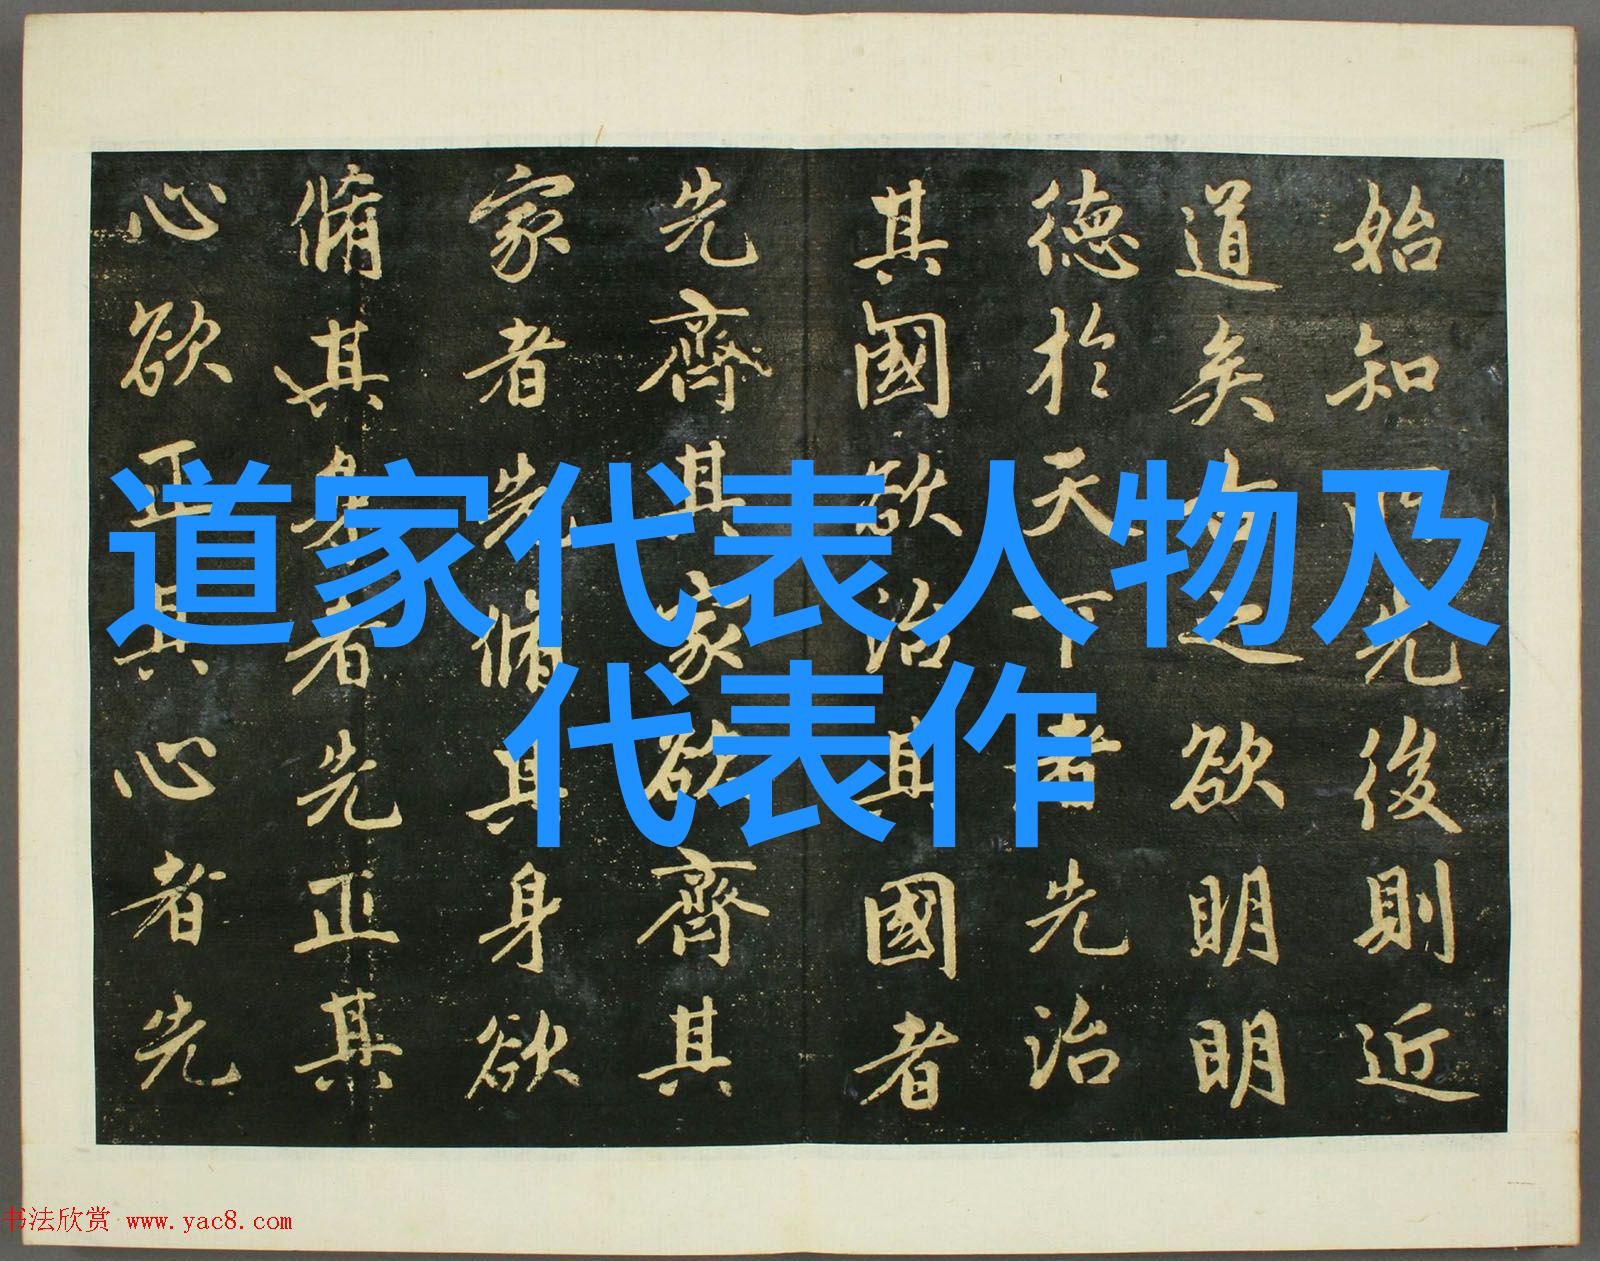 道家代表人物及
代表作
始知所先後則近
道矣古之欲明明
德於天下者先治
其國欲治其國者
先齊其家欲齊其
家者先脩其身欲
脩其身者先正其
心欲正其心者先
书法欣赏 www.yac8.com